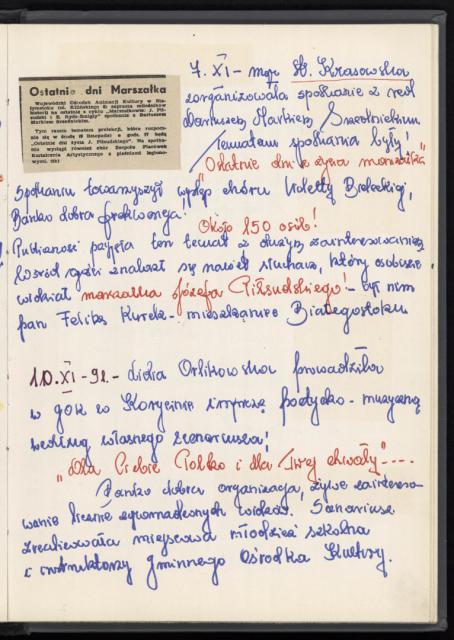 Ostatnie dni Marszałka
Wojewódzki Ośrodek Animacji Kultury w Bia-
łymstoku (ul. Kilińskiego 8) zaprasza miłośników
historii na ostatnie z cyklu „Marszałkowie: J. Pił-
sudski i E. Rydz-Śmigły” spotkanie z Dariuszem
Markiem Srzednickim.
Tym razem tematem prelekcji, która rozpocz-
nie się w środę (7 listopada) o godz. 17 będą
„Ostatnie dni życia J. Piłsudskiego”. Na spotka-
niu wystąpi również chór Zespołu Placówek
Kształcenia Artystycznego z pieśniami legiono-
wymi.
7. XI - mgr H. Krasowska
zorganizowała spotkanie z red.
Dariuszem Markiem Srzednickim
Tematem spotkania były!
"Ostatnie dni z życia marszałka"
Spotkaniu towarzyszył występ chóru Violetty Bieleckiej,
Bardzo dobra frekwencja! Około 150 osób!
Publiczność przyjęła ten temat z dużym zainteresowaniem
Wśród gości znalazł się nawet słuchacz, który osobiście
widział marszałka Józefa Piłsudskiego! - był nim
pan Feliks Kurek - mieszkaniec Białegostoku
10. XI - 91. - Lidia Orlikowska prowadziła
w GOK w Korycinie imprezę poetycko-muzyczną
według własnego scenariusza!
"Dla Ciebie Polsko i dla Twej chwały" ----
Bardzo dobra organizacja, żywe zaintereso-
wanie licznie zgromadzonych widzów. Scenariusz
zrealizowała miejscowa młodzież szkolna
i instruktorzy Gminnego Ośrodka Kultury.